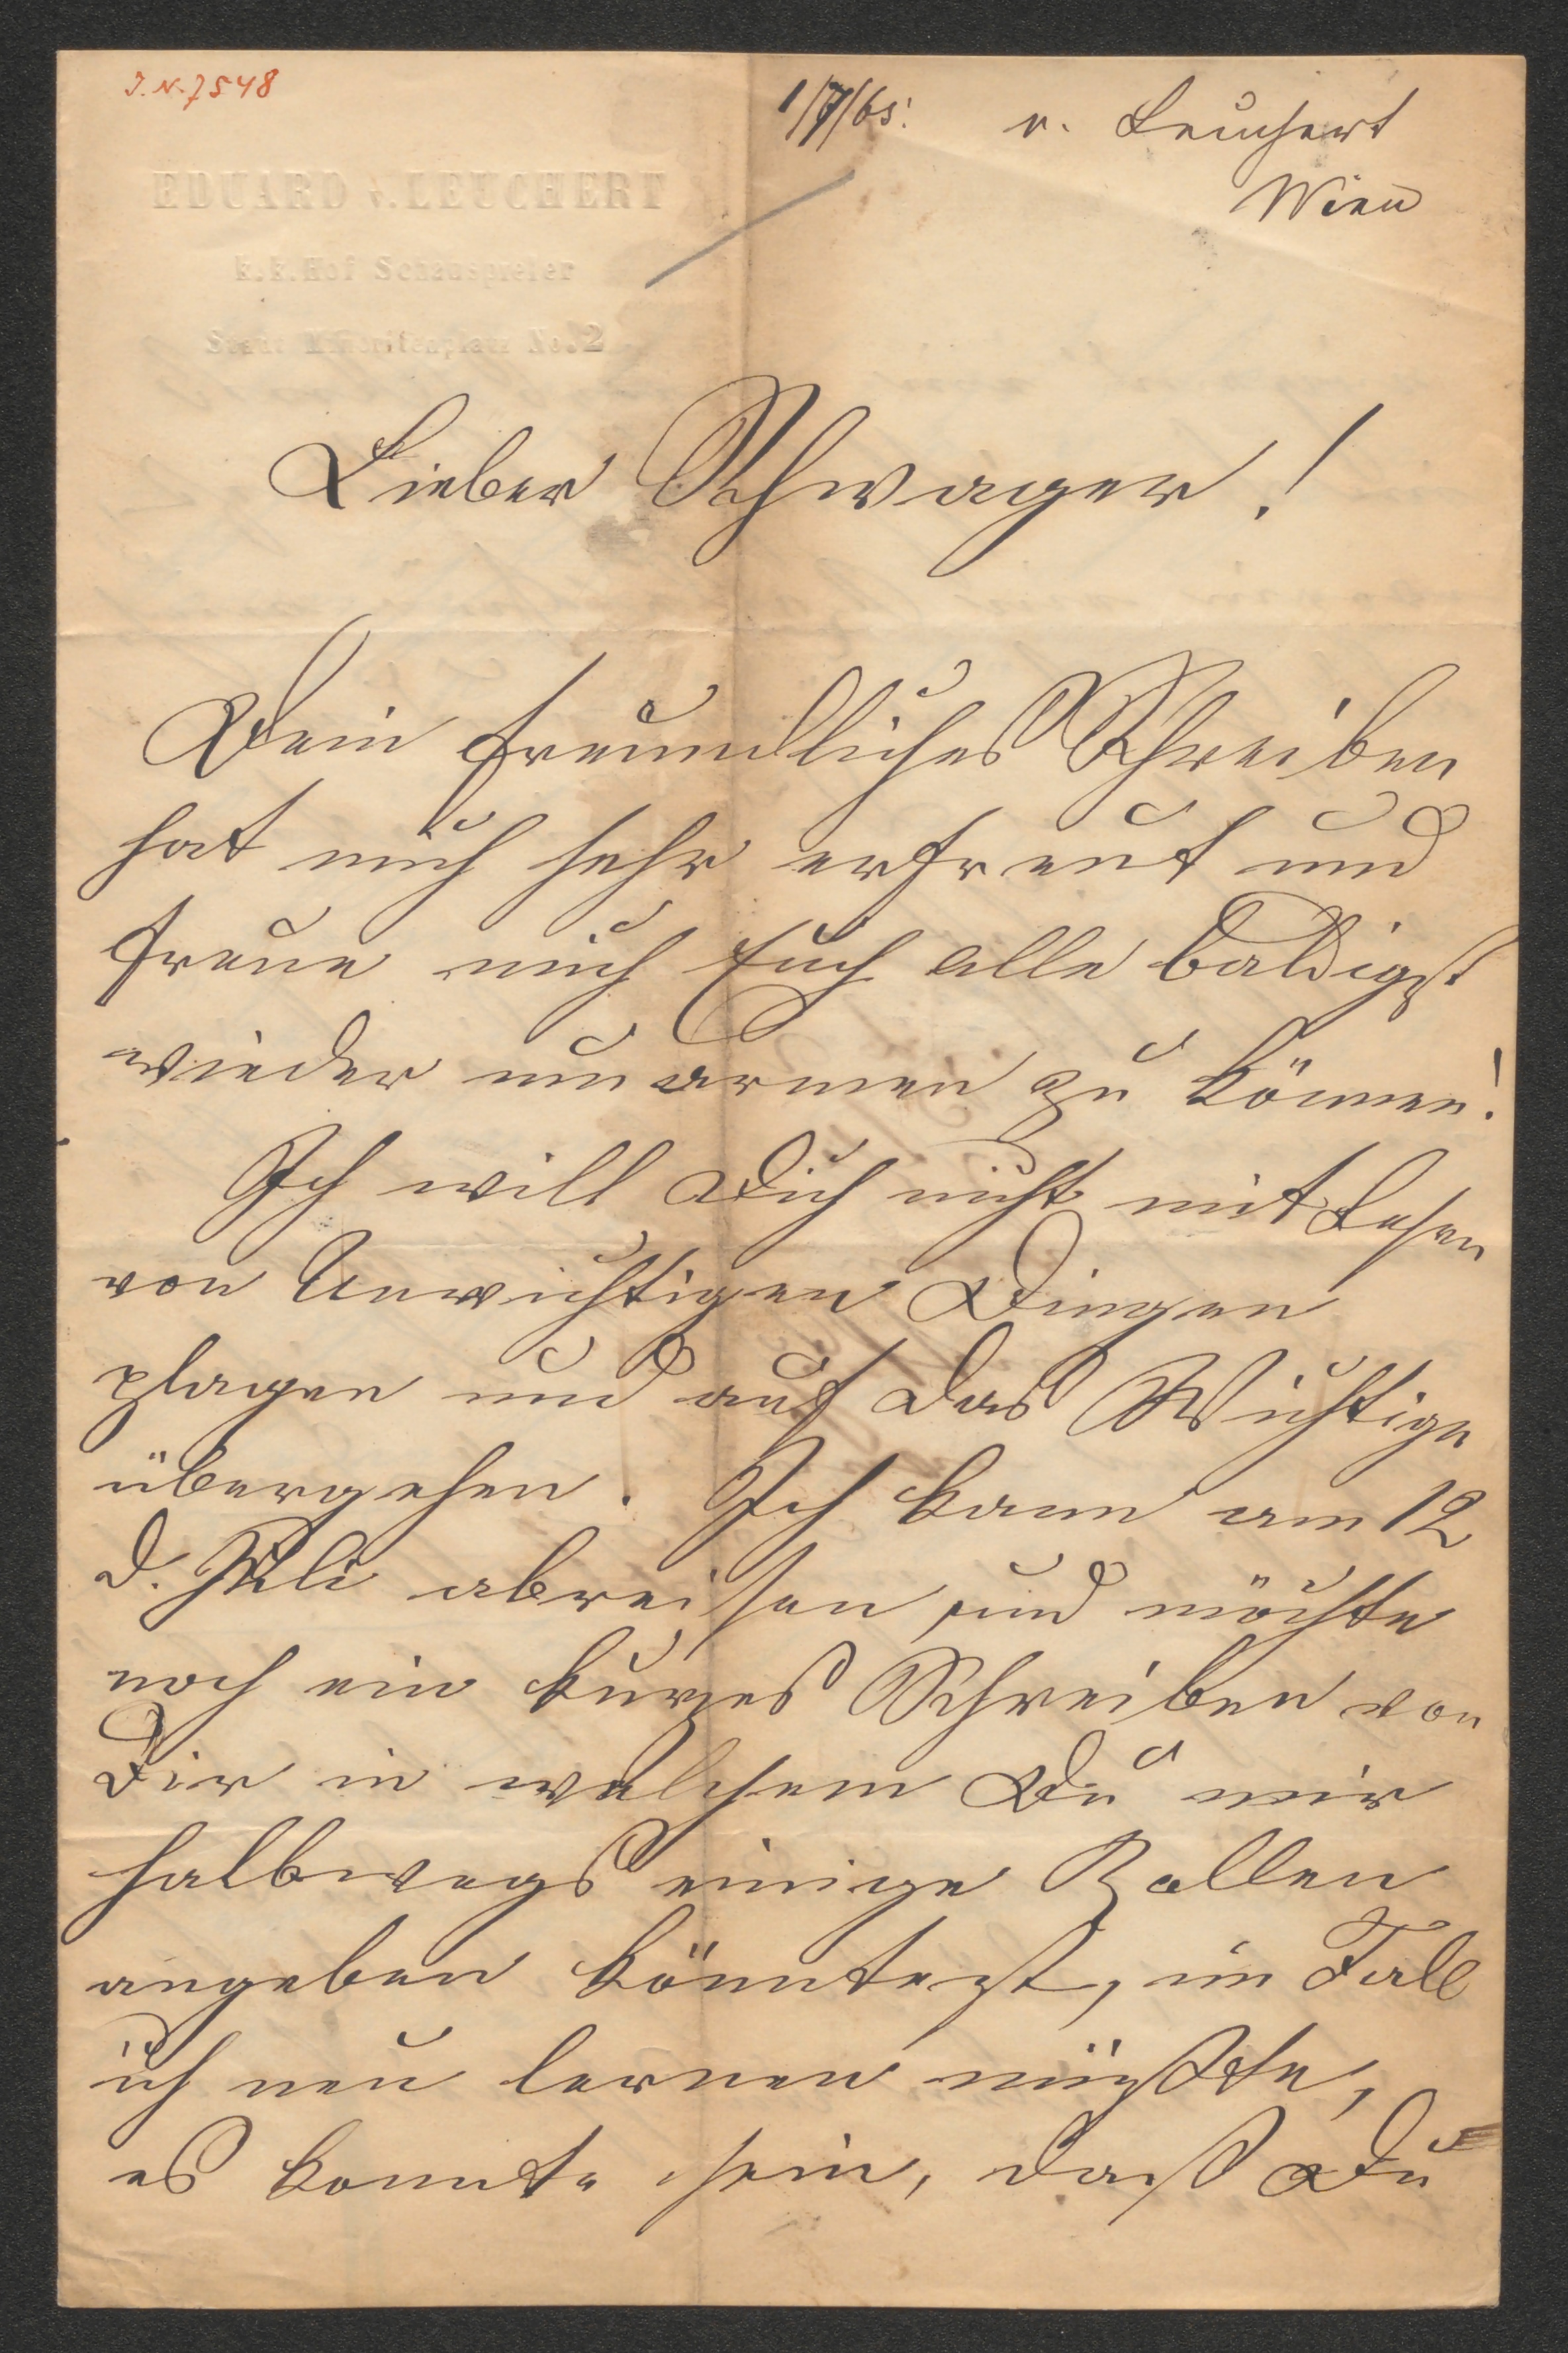 J.N. 7548
1/7/65. v. Leuchert
Wien
EDUARD v. LEUCHERT
k. k. Hof Schauspieler
Stadt Minoritenplatz No. 2
Lieber Schwager!
Dein freundliches Schreiben
hat mich sehr erfreut und
freue mich Euch alle baldigst
wieder umarmen zu können!
Ich will Dich nicht mit Lesen
von Unwichtigen Dingen
plagen und auf das Wichtige
übergehen. Ich kann am 12
d. Juli abreisen und möchte
noch ein kurzes Schreiben von
Dir in welchem Du mir
halbwegs einige Rollen
angeben könntest, im Fall
ich neu lernen müßte,
es konnte sein, daß Du